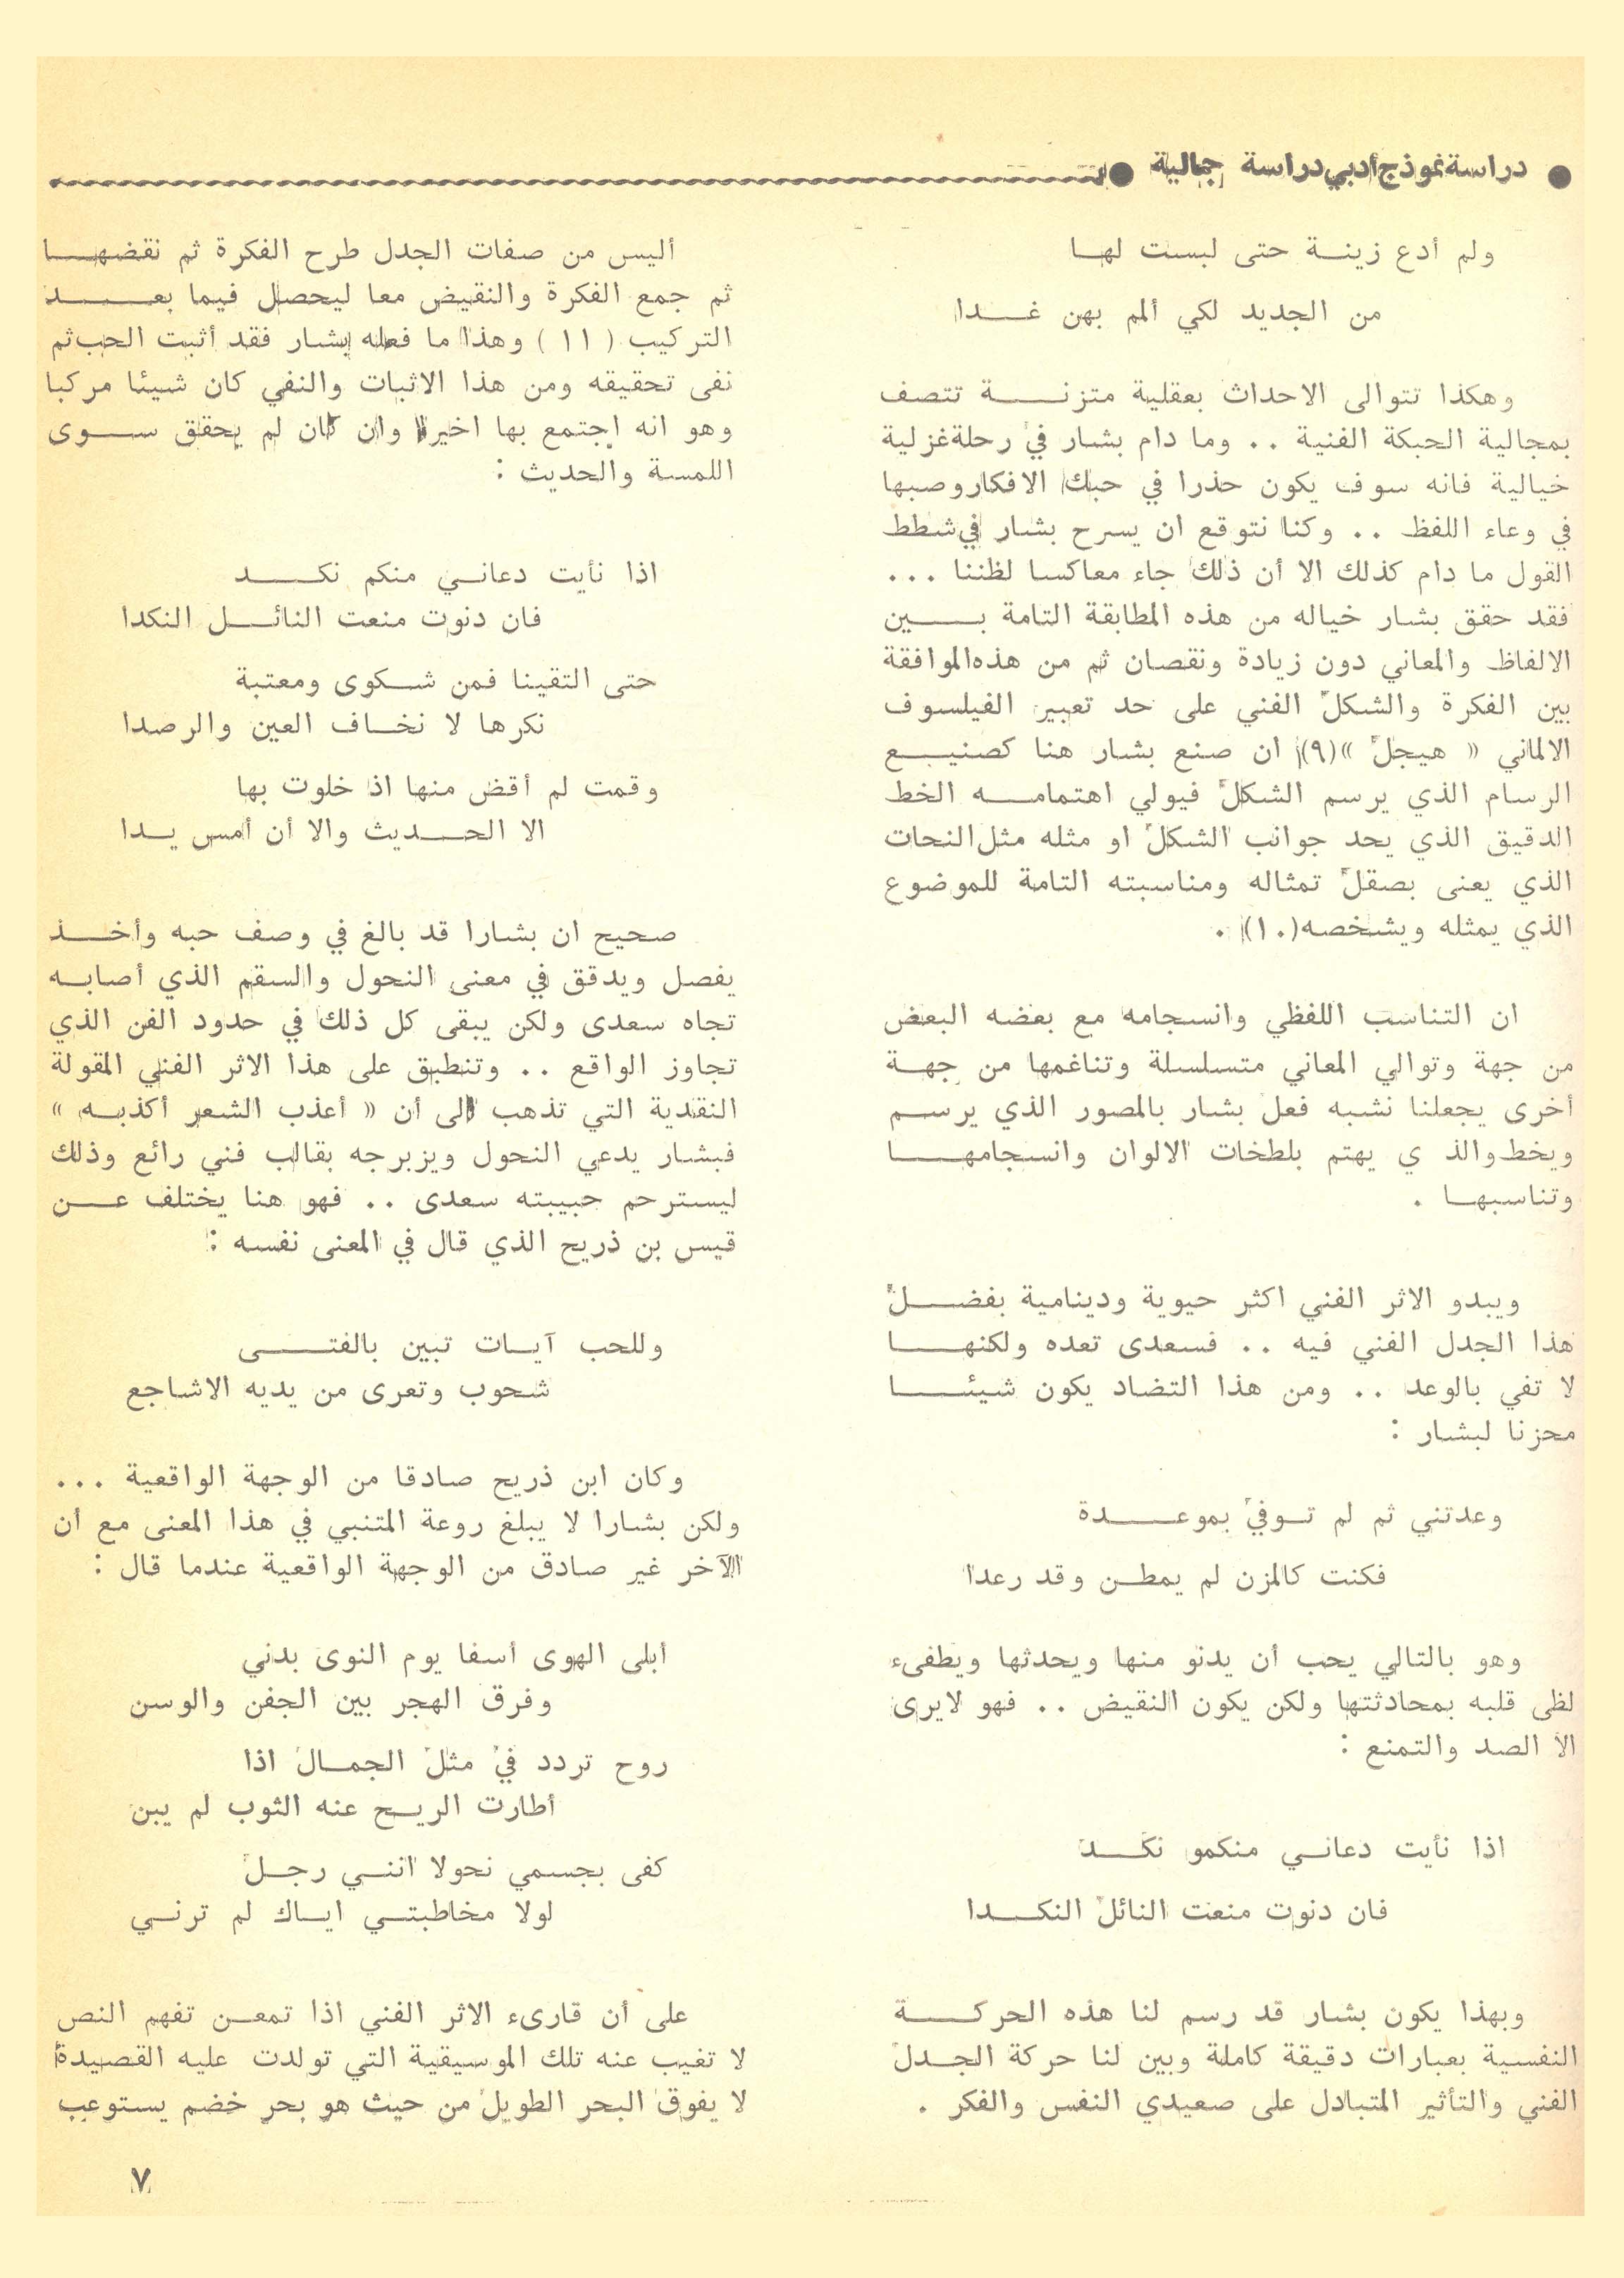 ● دراسة نموذج أدبي دراسة جمالية ●
ولم أدع زينة حتى لبست لها
من الجديد لكي ألمم بهن غدا
وهكذا تتوالى الاحداث بعقلية متزنة تتصف
بمجالية الحبكة الفنية .. وما دام بشار في رحلة غزلية
خيالية فانه سوف يكون حذرا في حبك الافكار وصبها
في وعاء اللفظ .. وكنا نتوقع ان يسرح بشار في شطط
القول ما دام كذلك الا أن ذلك جاء معاكسا لظننا ...
فقد حقق بشار خياله من هذه المطابقة التامة بين
الالفاظ والمعاني دون زيادة ونقصان ثم من هذه الموافقة
بين الفكرة والشكل الفني على حد تعبير الفيلسوف
الالماني « هيجل »(٩) ان صنع بشار هنا كصنيع
الرسام الذي يرسم الشكل فيولي اهتمامه الخط
الدقيق الذي يحد جوانب الشكل او مثله مثل النحات
الذي يعنى بصقل تمثاله ومناسبته التامة للموضوع
الذي يمثله ويشخصه(١٠) .
ان التناسب اللفظي وانسجامه مع بعضه البعض
من جهة وتوالي المعاني متسلسلة وتناغمها من جهة
أخرى يجعلنا نشبه فعل بشار بالمصور الذي يرسم
ويخط والذ ي يهتم بلطخات الالوان وانسجامها
وتناسبها .
ويبدو الاثر الفني اكثر حيوية ودينامية بفضل
هذا الجدل الفني فيه .. فسعدى تعده ولكنها
لا تفي بالوعد .. ومن هذا التضاد يكون شيئا
محزنا لبشار :
وعدتني ثم لم توفي بموعدة
فكنت كالمزن لم يمطن وقد رعدا
وهو بالتالي يحب أن يدنو منها ويحدثها ويطفىء
لظى قلبه بمحادثتها ولكن يكون النقيض .. فهو لا يرى
الا الصد والتمنع :
اذا نأيت دعاني منكمو نكد
فان دنوت منعت النائل النكدا
وبهذا يكون بشار قد رسم لنا هذه الحركة
النفسية بعبارات دقيقة كاملة وبين لنا حركة الجدل
الفني والتأثير المتبادل على صعيدي النفس والفكر .
أليس من صفات الجدل طرح الفكرة ثم نقضها
ثم جمع الفكرة والنقيض معا ليحصل فيما بعد
التركيب (١١) وهذا ما فعله بشار فقد أثبت الحب ثم
نفى تحقيقه ومن هذا الاثبات والنفي كان شيئا مركبا
وهو انه اجتمع بها اخيرا وان كان لم يحقق سوى
اللمسة والحديث :
اذا نأيت دعاني منكم نكد
فان دنوت منعت النائل النكدا
حتى التقينا فمن شكوى ومعتبة
نكرها لا نخاف العين والرصدا
وقمت لم أقض منها اذ خلوت بها
الا الحديث والا أن أمس يدا
صحيح ان بشارا قد بالغ في وصف حبه وأخذ
يفصل ويدقق في معنى النحول والسقم الذي أصابه
تجاه سعدى ولكن يبقى كل ذلك في حدود الفن الذي
تجاوز الواقع .. وتنطبق على هذا الاثر الفني المقولة
النقدية التي تذهب الى أن « أعذب الشعر أكذبه »
فبشار يدعي النحول ويزبرجه بقالب فني رائع وذلك
ليسترحم حبيبته سعدى .. فهو هنا يختلف عن
قيس بن ذريح الذي قال في المعنى نفسه :
وللحب آيات تبين بالفتى
شحوب وتعرى من يديه الاشاجع
وكان ابن ذريح صادقا من الوجهة الواقعية ...
ولكن بشارا لا يبلغ روعة المتنبي في هذا المعنى مع أن
الآخر غير صادق من الوجهة الواقعية عندما قال :
أبلى الهوى أسفا يوم النوى بدني
وفرق الهجر بين الجفن والوسن
روح تردد في مثل الجمال اذا
أطارت الريح عنه الثوب لم يبن
كفى بجسمي نحولا انني رجل
لولا مخاطبتي اياك لم ترني
على أن قارىء الاثر الفني اذا تمعن تفهم النص
لا تغيب عنه تلك الموسيقية التي تولدت عليه القصيدة
لا يفوق البحر الطويل من حيث هو بحر خضم يستوعب
٧